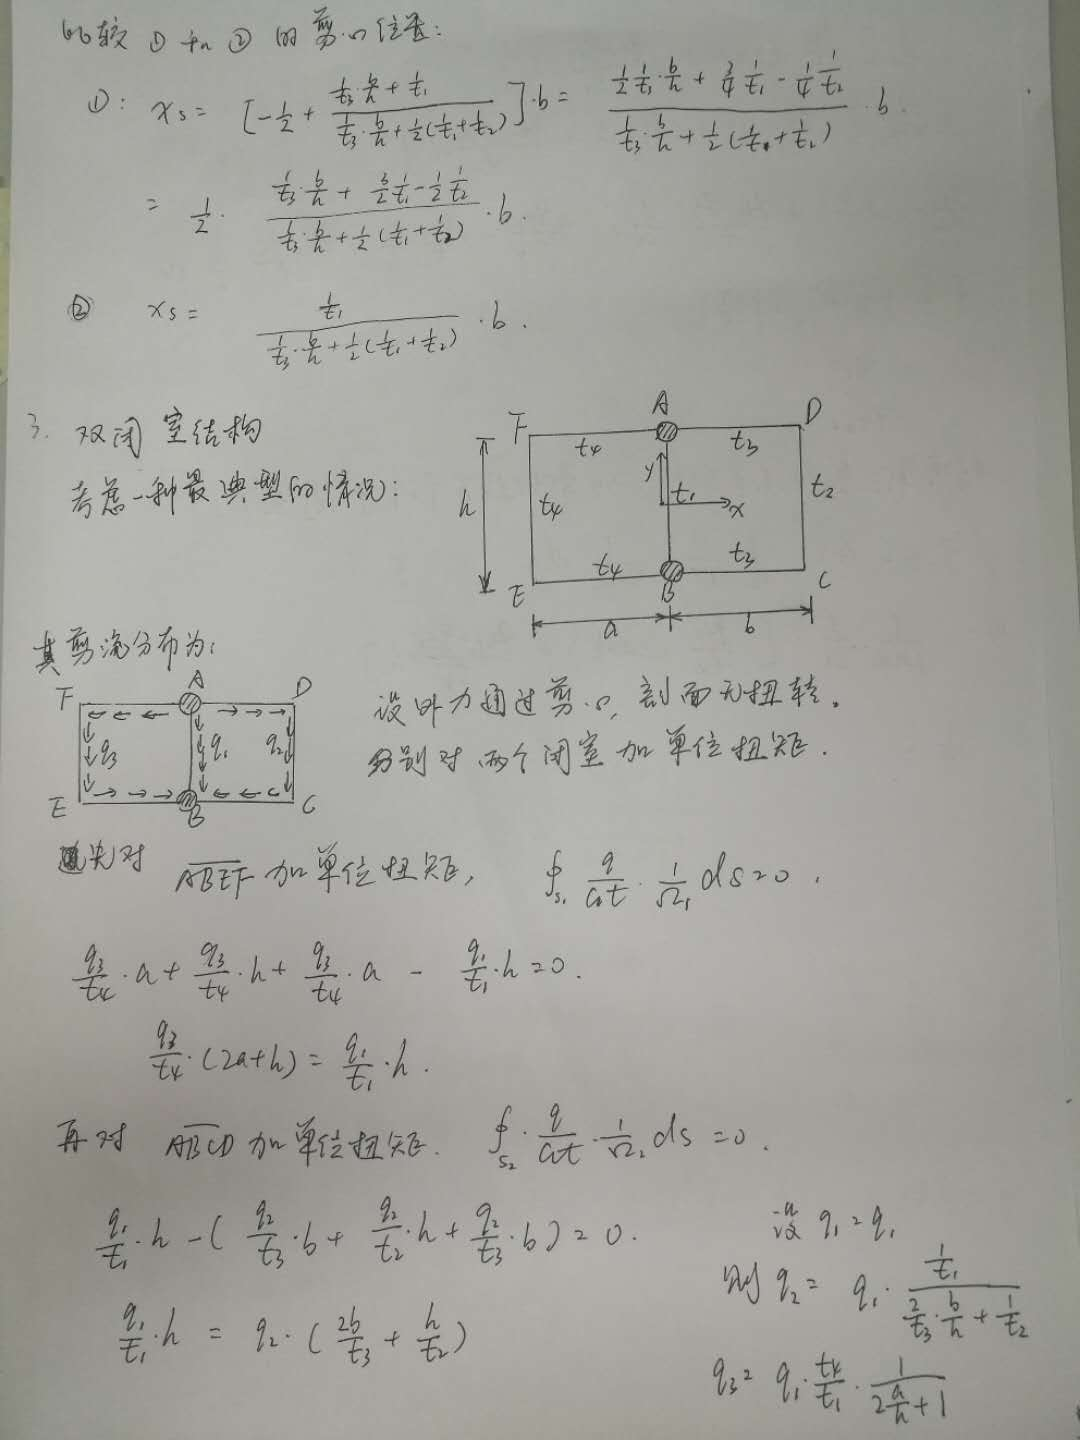 比较 ① 和 ② 的剪心位置:
①: xs = [-1/2 + (1/t3·b/h + 1/t1)/(1/t3·b/h + 1/2(1/t1+1/t2))]·b = (1/2 1/t3·b/h + 3/4 1/t1 - 1/4 1/t2)/(1/t3·b/h + 1/2(1/t1+1/t2))·b
= 1/2·(1/t3·b/h + 3/2 1/t1 - 1/2 1/t2)/(1/t3·b/h + 1/2(1/t1+1/t2))·b.
② xs = (1/t1)/(1/t3·b/h + 1/2(1/t1+1/t2))·b.
3. 双闭室结构
考虑一种最典型的情况:
F A D
t4 t3
h t4 y t1 x t2
t4 t3
E B C
a b
其剪流分布为:
F A D
q3 q1 q2
E B C
设外力通过剪心, 剖面无扭转.
分别对两个闭室加单位扭矩.
先对 ABEF 加单位扭矩, ∮s1 q/Gt·1/Ω1 ds=0.
q3/t4·a + q3/t4·h + q3/t4·a - q1/t1·h = 0.
q3/t4·(2a+h) = q1/t1·h.
再对 ABCD 加单位扭矩. ∮s2·q/Gt·1/Ω2 ds = 0.
q1/t1·h - (q2/t3·b + q2/t2·h + q2/t3·b) = 0.
q1/t1·h = q2·(2b/t3 + h/t2)
设 q1 = q1
则 q2 = q1·(1/t1)/(2/t3·b/h + 1/t2)
q3 = q1·t4/t1·1/(2a/h + 1)